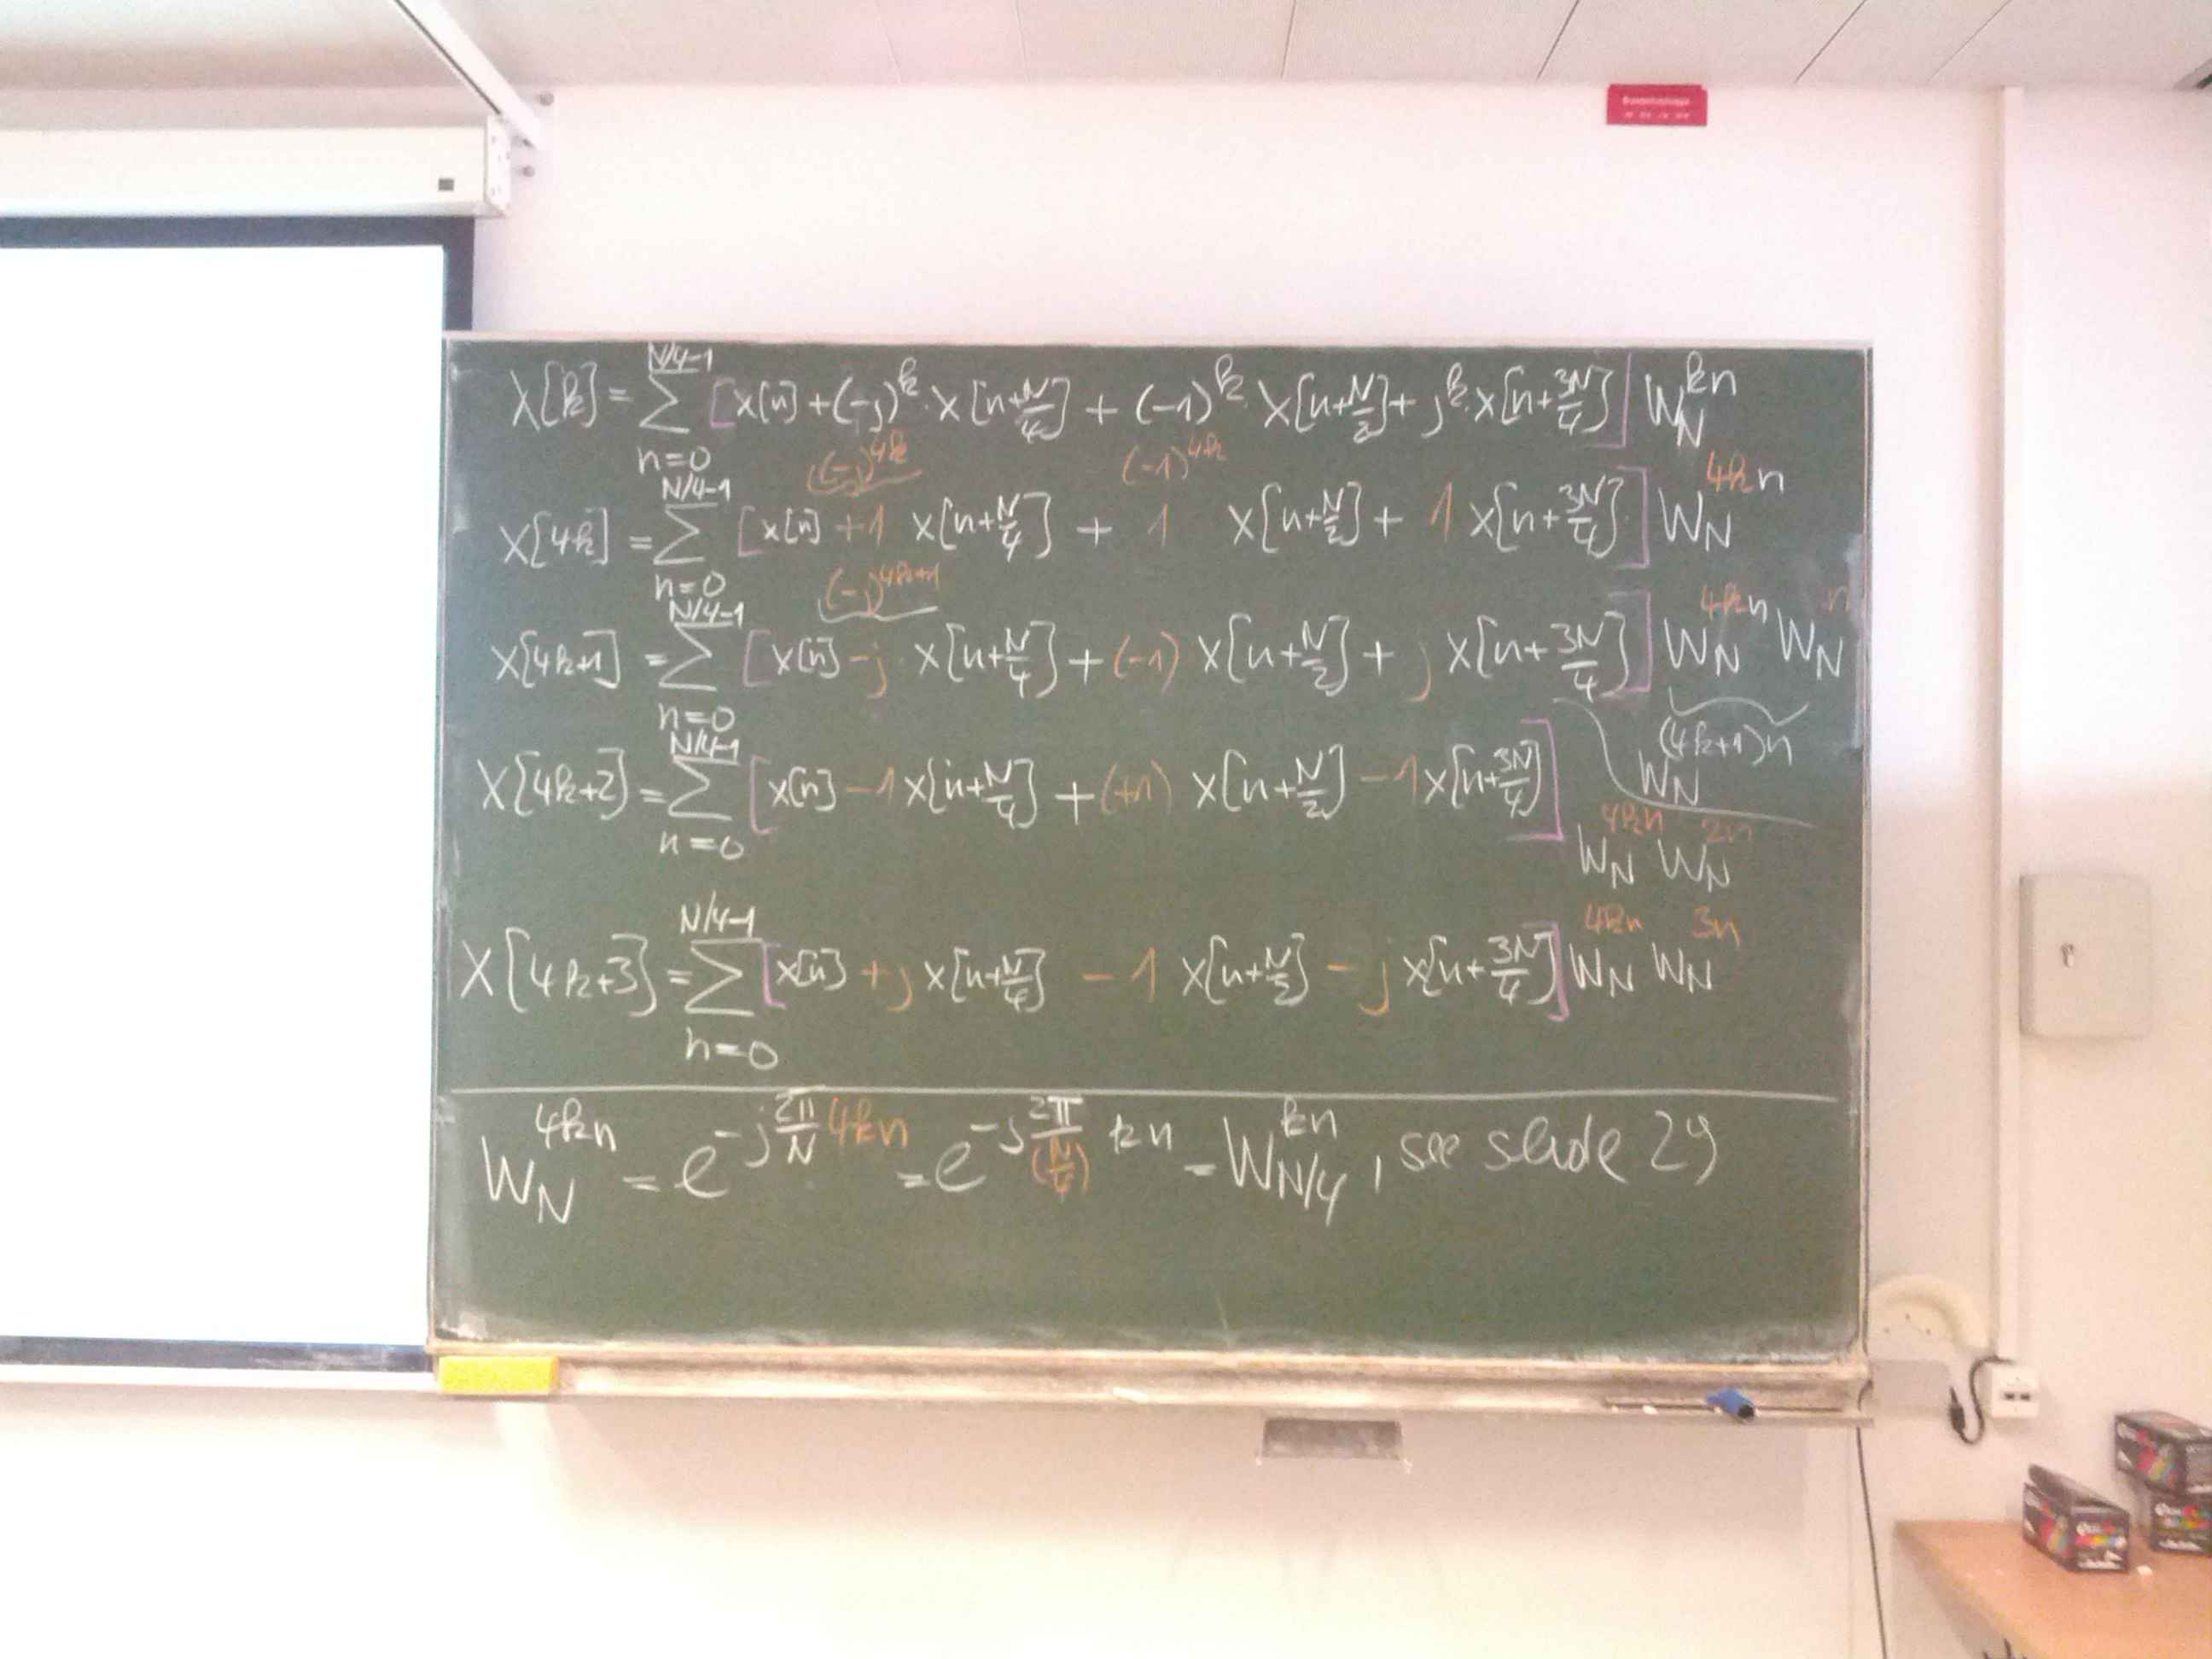 X[k] = ∑_{n=0}^{N/4-1} [x[n] + (-j)^k · x[n+N/4] + (-1)^k · x[n+N/2] + j^k · x[n+3N/4]] W_N^{kn}
(-j)^{4k} (-1)^{4k}
X[4k] = ∑_{n=0}^{N/4-1} [x[n] + 1 x[n+N/4] + 1 x[n+N/2] + 1 x[n+3N/4]] W_N^{4kn}
(-j)^{4k+1}
X[4k+1] = ∑_{n=0}^{N/4-1} [x[n] - j · x[n+N/4] + (-1) x[n+N/2] + j x[n+3N/4]] W_N^{4kn} W_N^{n}
W_N^{(4k+1)n}
X[4k+2] = ∑_{n=0}^{N/4-1} [x[n] - 1 x[n+N/4] + (+1) x[n+N/2] - 1 x[n+3N/4]] W_N^{4kn} W_N^{2n}
X[4k+3] = ∑_{n=0}^{N/4-1} [x[n] + j x[n+N/4] - 1 x[n+N/2] - j x[n+3N/4]] W_N^{4kn} W_N^{3n}
W_N^{4kn} = e^{-j 2π/N 4kn} = e^{-j 2π/(N/4) kn} = W_{N/4}^{kn}, see slide 29